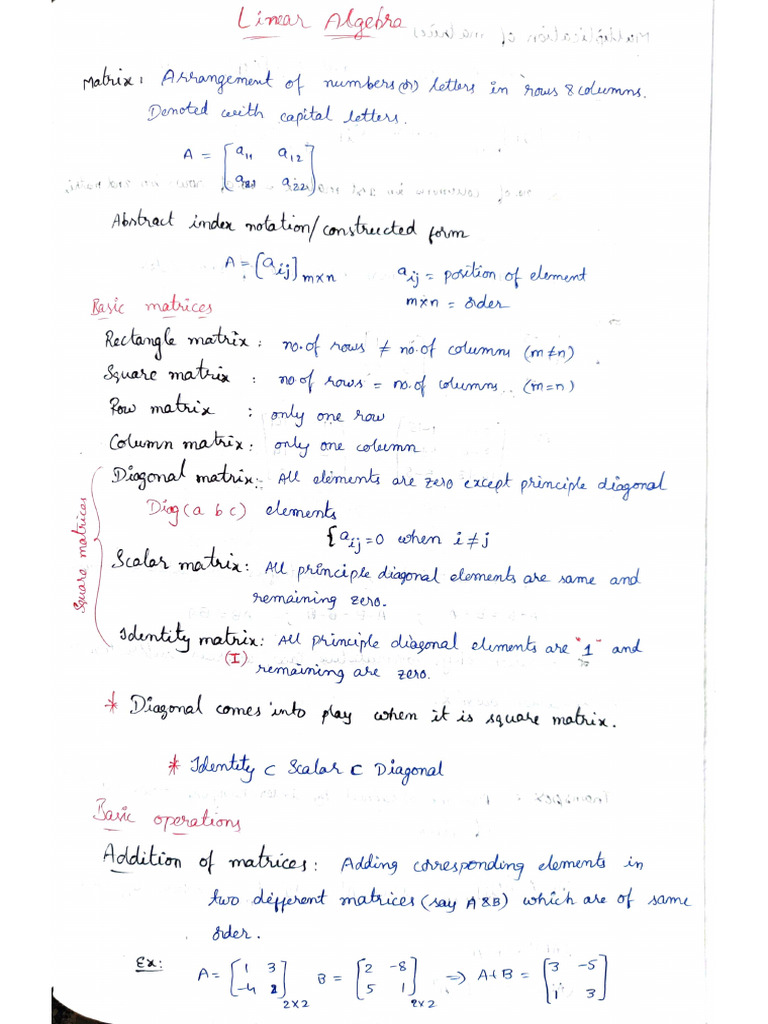 Linear Algebra
Matrix: Arrangement of numbers (or) letters in rows & columns.
Denoted with capital letters.
A = [a₁₁ a₁₂
a₂₁ a₂₂]
Abstract index notation/constructed form
A = [aᵢⱼ]ₘₓₙ aᵢⱼ = position of element
m×n = order
Basic matrices
Rectangle matrix: no. of rows ≠ no. of columns (m≠n)
Square matrix : no of rows = no. of columns. (m=n)
Row matrix : only one row
Column matrix: only one column
Square matrices
Diagonal matrix: All elements are zero except principle diagonal
Diag (a b c) elements
{aᵢⱼ=0 when i≠j
Scalar matrix: All principle diagonal elements are same and
remaining zero.
Identity matrix: All principle diagonal elements are "1" and
(I) remaining are zero.
* Diagonal comes into play when it is square matrix.
* Identity ⊂ Scalar ⊂ Diagonal
Basic operations
Addition of matrices: Adding corresponding elements in
two different matrices (say A & B) which are of same
order.
Ex: A = [1 3 B = [2 -8 ⇒ A+B = [3 -5
-4 2]₂ₓ₂ 5 1]₂ₓ₂ 1 3]